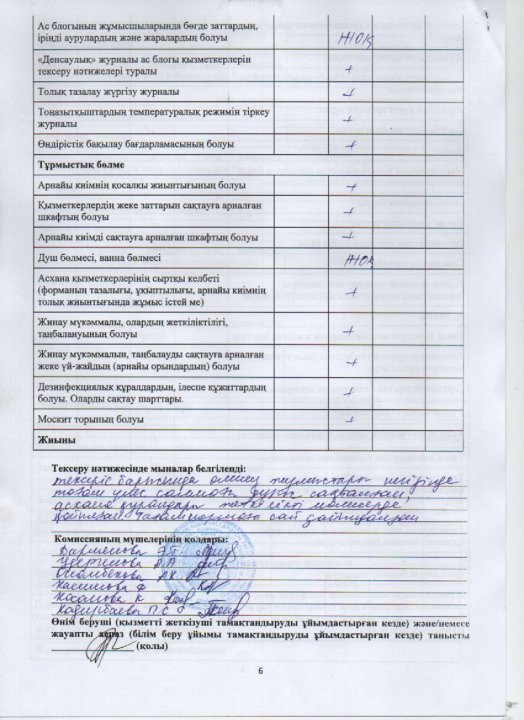 Ас блогының жұмысшыларында бөгде заттардың,
іріңді аурулардың және жаралардың болуы
жоқ
«Денсаулық» журналы ас блогы қызметкерлерін
тексеру нәтижелері туралы
+
Толық тазалау жүргізу журналы
+
Тоназытқыштардың температуралық режимін тіркеу
журналы
+
Өндірістік бақылау бағдарламасының болуы
+
Тұрмыстық бөлме
Арнайы киімнің қосалқы жиынтығының болуы
+
Қызметкерлердің жеке заттарын сақтауға арналған
шкафтың болуы
+
Арнайы киімді сақтауға арналған шкафтың болуы
+
Душ бөлмесі, ванна бөлмесі
жоқ
Асхана қызметкерлерінің сыртқы келбеті
(форманың тазалығы, ұқыптылығы, арнайы киімнің
толық жиынтығында жұмыс істей ме)
+
Жинау мүкәммалы, олардың жеткіліктілігі,
таңбалануының болуы
+
Жинау мүкәммалын, таңбалауды сақтауға арналған
жеке үй-жайдың (арнайы орындардың) болуы
+
Дезинфекциялық құралдардың, ілеспе құжаттардың
болуы. Оларды сақтау шарттары.
+
Москит торының болуы
+
Жиыны
Тексеру нәтижесінде мыналар белгіленді:
тексеріс барысында
тағам үлес салмағы дұрыс сақталған,
асхана құралдары жеткілікті
сай дайындалған
Комиссияның мүшелерінің қолдары:
Касимова Ф
Косанова К
Кадирбаева П.С
Өнім беруші (қызметті жеткізуші тамақтандыруды ұйымдастырған кезде) және/немесе
жауапты аспаз (білім беру ұйымы тамақтандыруды ұйымдастырған кезде) танысты
(қолы)
6